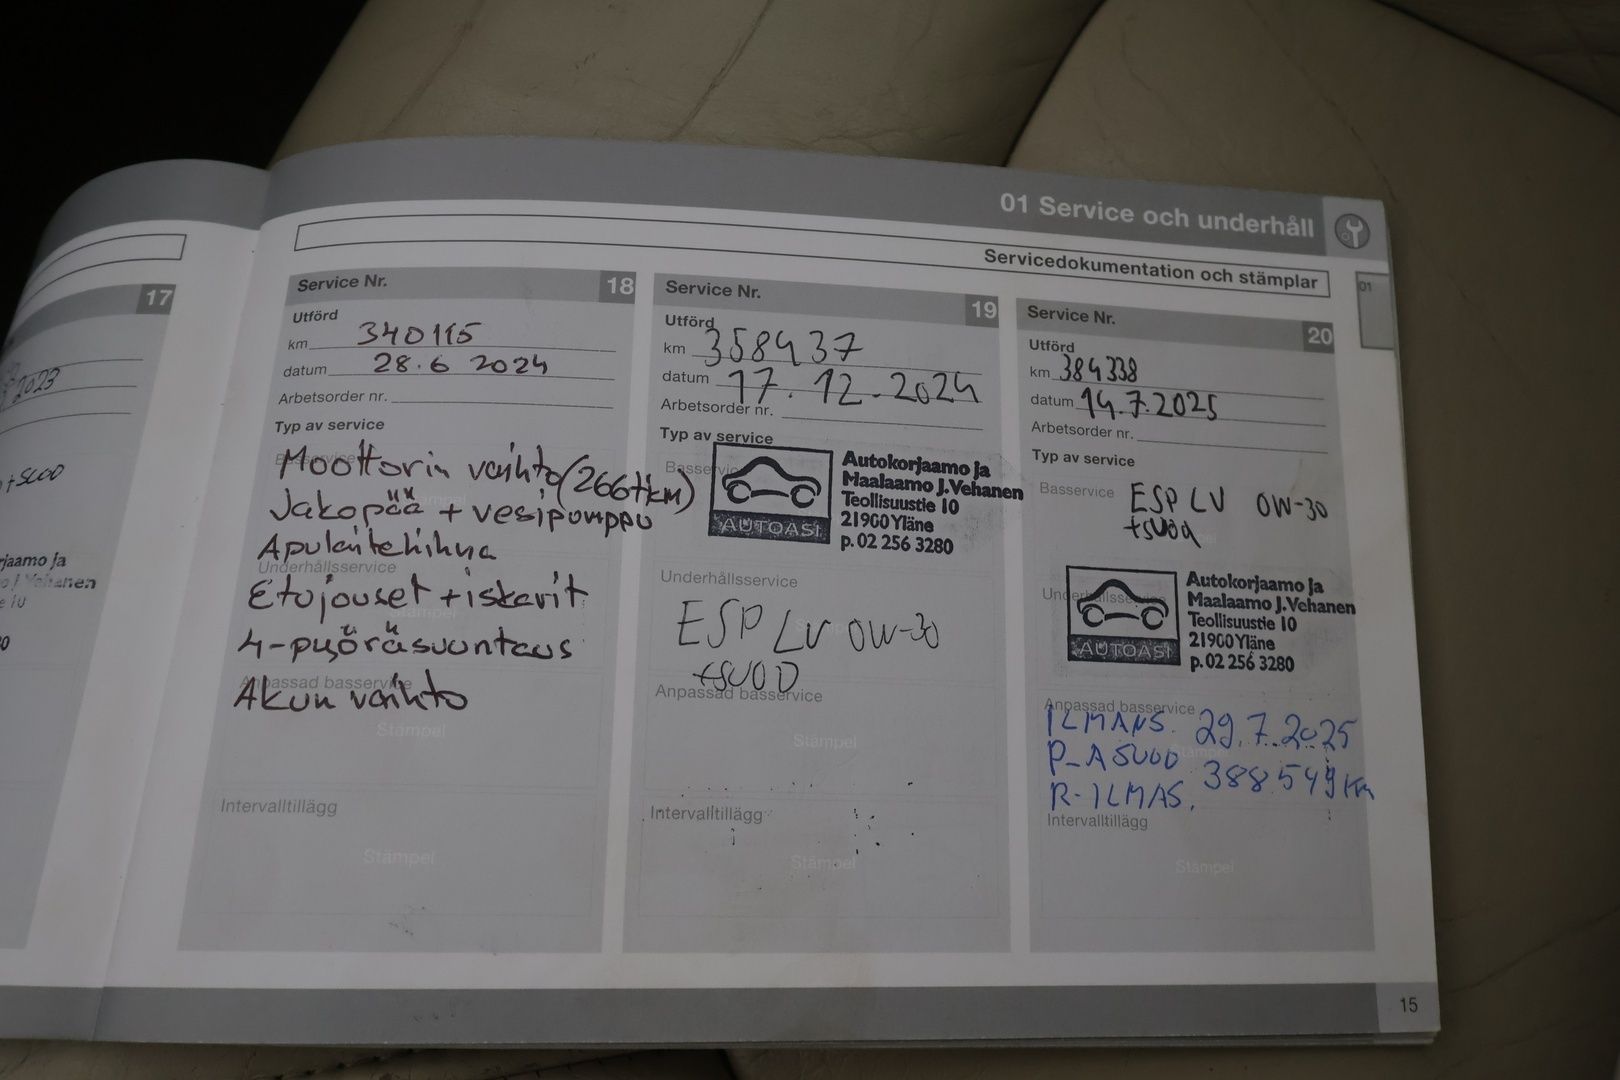 01 Service och underhåll
Servicedokumentation och stämplar
01
17
2023
+suoD
Service Nr. 18
Utförd
km 340115
datum 28.6 2024
Arbetsorder nr.
Typ av service
Basservice
Moottorin vaihto (266tkm)
Stämpel
Jakopää + vesipumppu
Apulaitehihna
Underhållsservice
Etujouset + iskarit
Stämpel
4-pyöräsuuntaus
Anpassad basservice
Akun vaihto
Stämpel
Intervalltillägg
Stämpel
Service Nr. 19
Utförd
km 358437
datum 17.12.2024
Arbetsorder nr.
Typ av service
Basservice
Autokorjaamo ja
Maalaamo J.Vehanen
Teollisuustie 10
21900 Yläne
p. 02 256 3280
AUTOASI
Underhållsservice
ESP LV 0W-30
+SUOD
Anpassad basservice
Stämpel
Intervalltillägg
Stämpel
Service Nr. 20
Utförd
km 384338
datum 14.7.2025
Arbetsorder nr.
Typ av service
Basservice
ESP LV 0W-30
+suod
Autokorjaamo ja
Maalaamo J.Vehanen
Teollisuustie 10
21900 Yläne
p. 02 256 3280
AUTOASI
Anpassad basservice
ILMANS. 29.7.2025
P-ASUOD 388549 km
R-ILMAS.
Stämpel
Intervalltillägg
Stämpel
15